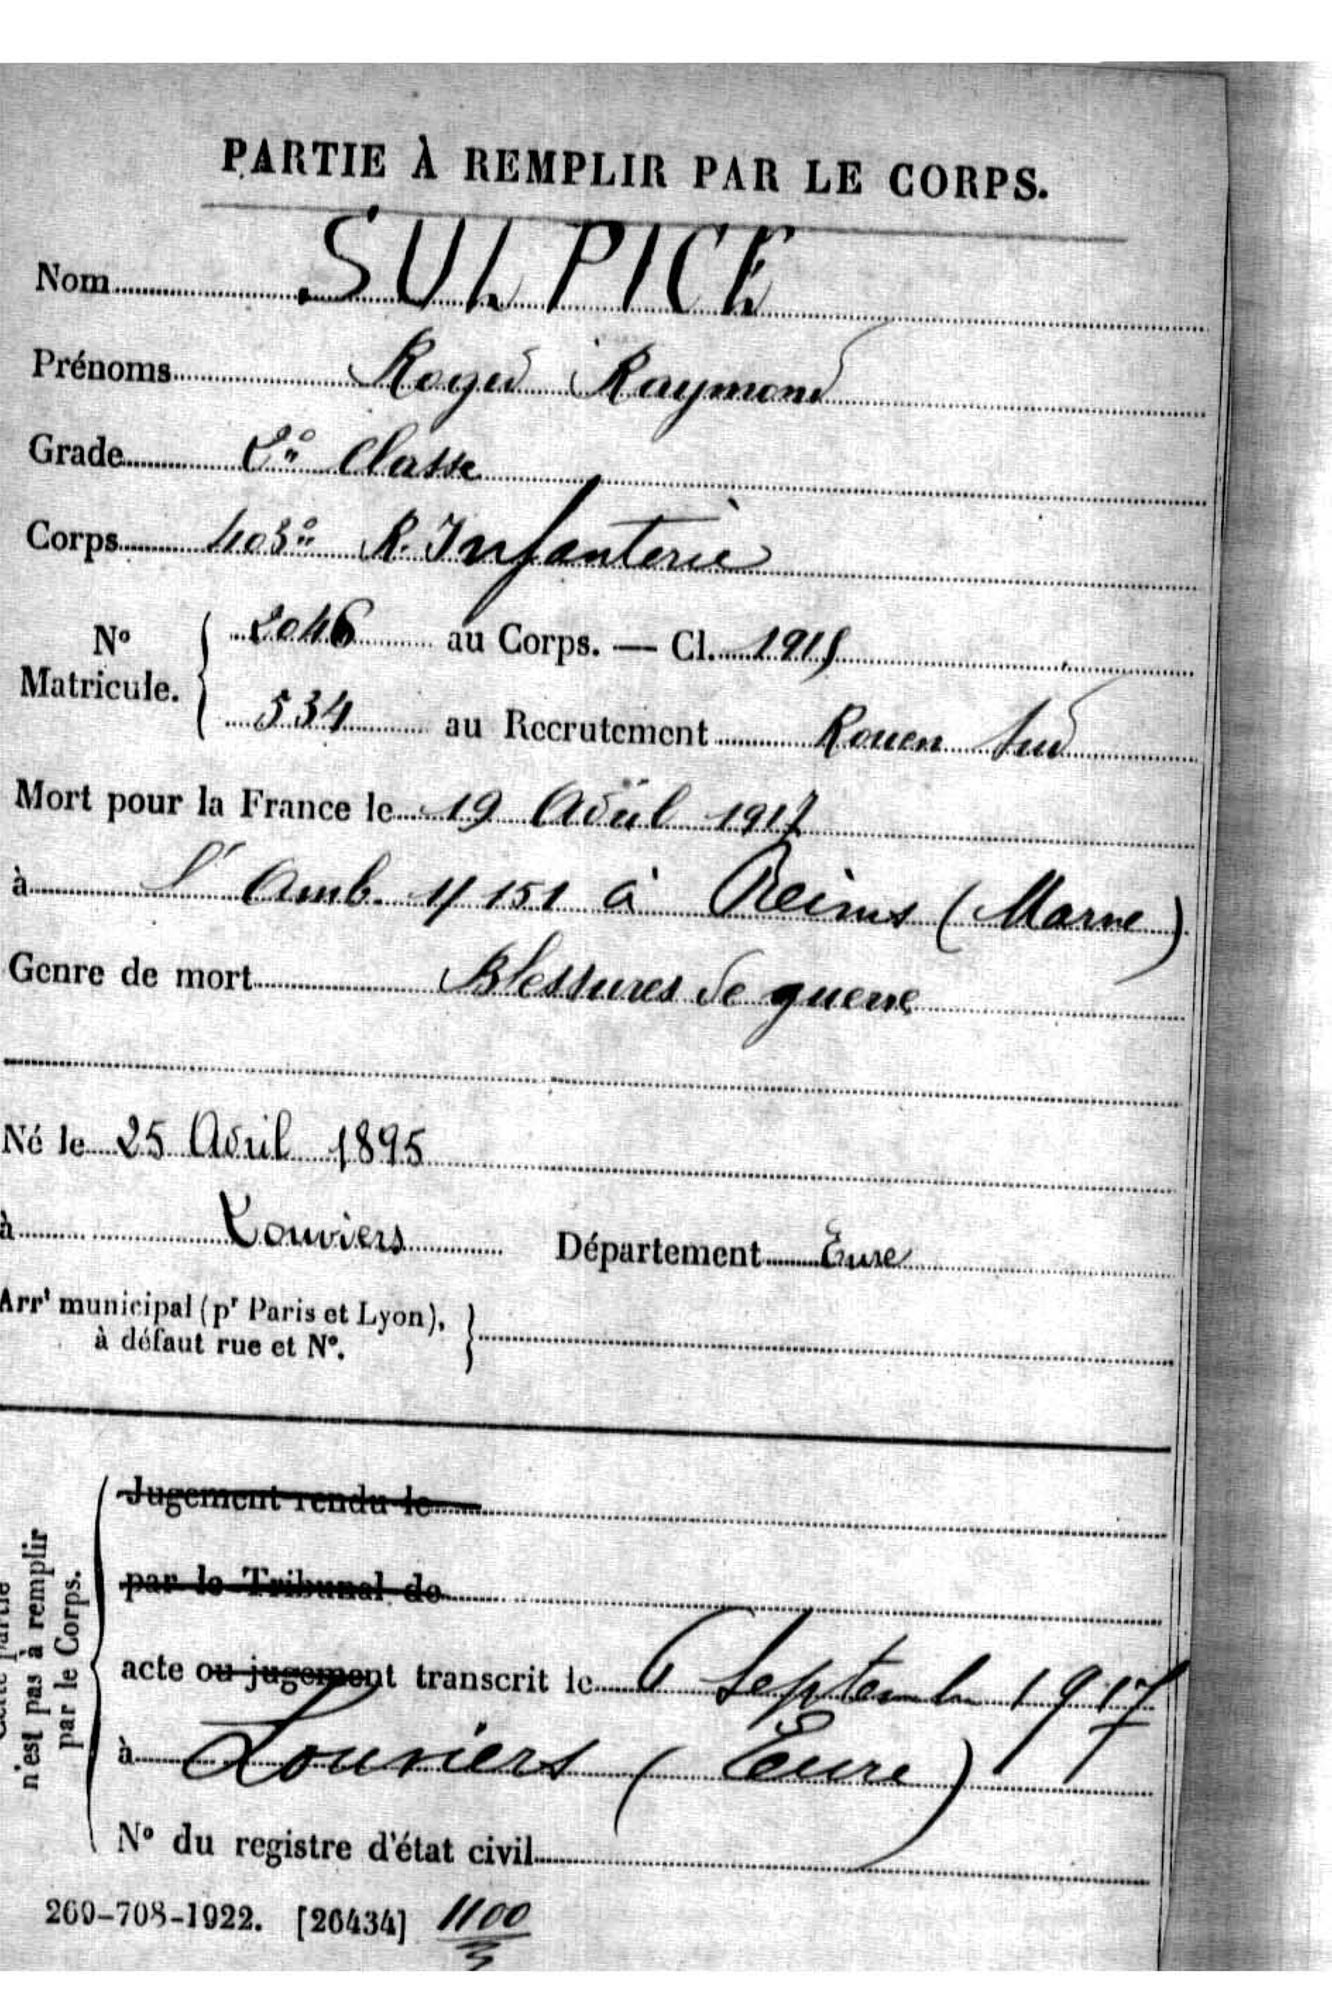 PARTIE À REMPLIR PAR LE CORPS.
Nom SULPICE
Prénoms Roger Raymond
Grade 2e Classe
Corps 403e R. Infanterie
No Matricule. { 2046 au Corps. — Cl. 1915
534 au Recrutement Rouen Sud
Mort pour la France le 19 Avril 1917
à l'Amb. 4/151 à Reims (Marne)
Genre de mort Blessures de guerre
Né le 25 Avril 1895
à Louviers Département Eure
Arrt municipal (pr Paris et Lyon),
à défaut rue et No. }
n'est pas à remplir
par le Corps.
Jugement rendu le
par le Tribunal de
acte ou jugement transcrit le 6 Septembre 1917
à Louviers (Eure)
No du registre d'état civil
269-708-1922. [26434] 1100